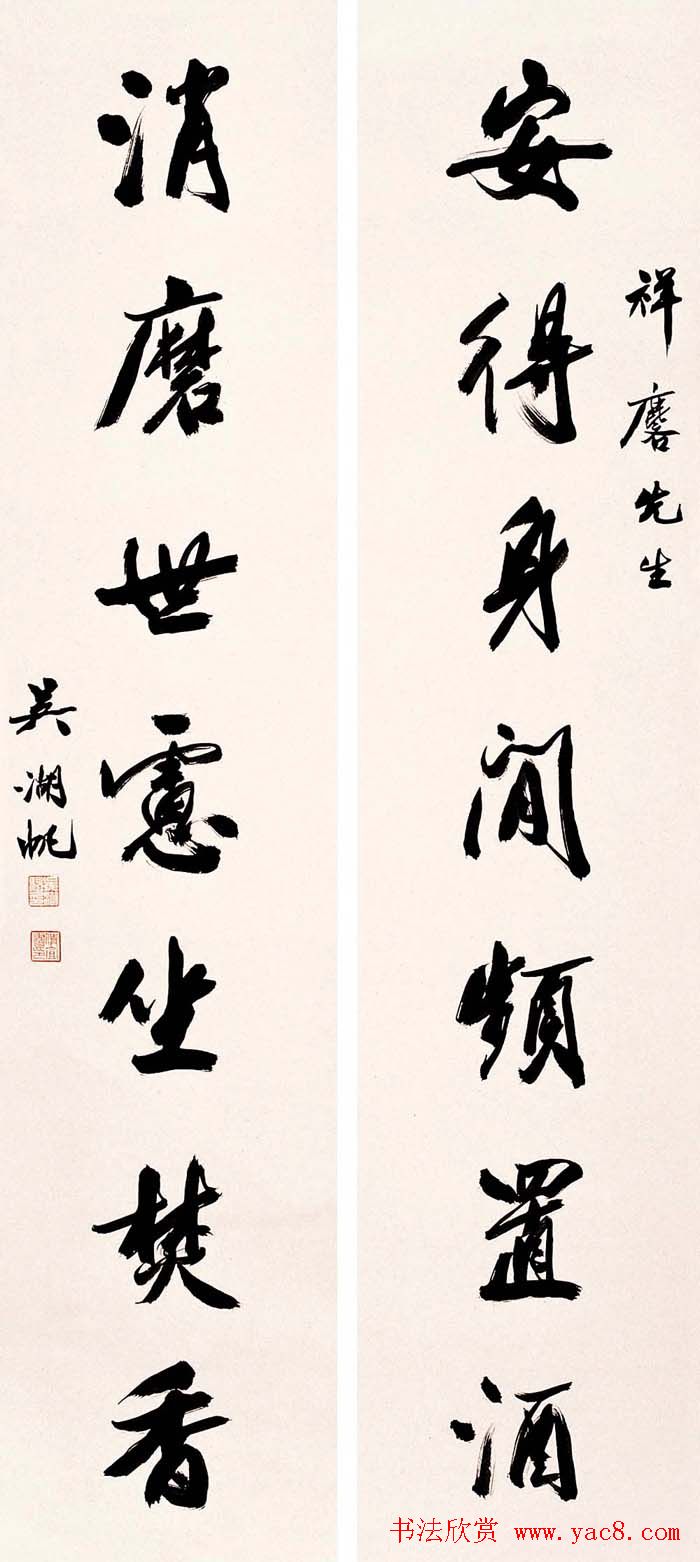 祥麐先生
安得身閒頻置酒
消磨世慮坐焚香
吳湖帆
书法欣赏 www.yac8.com